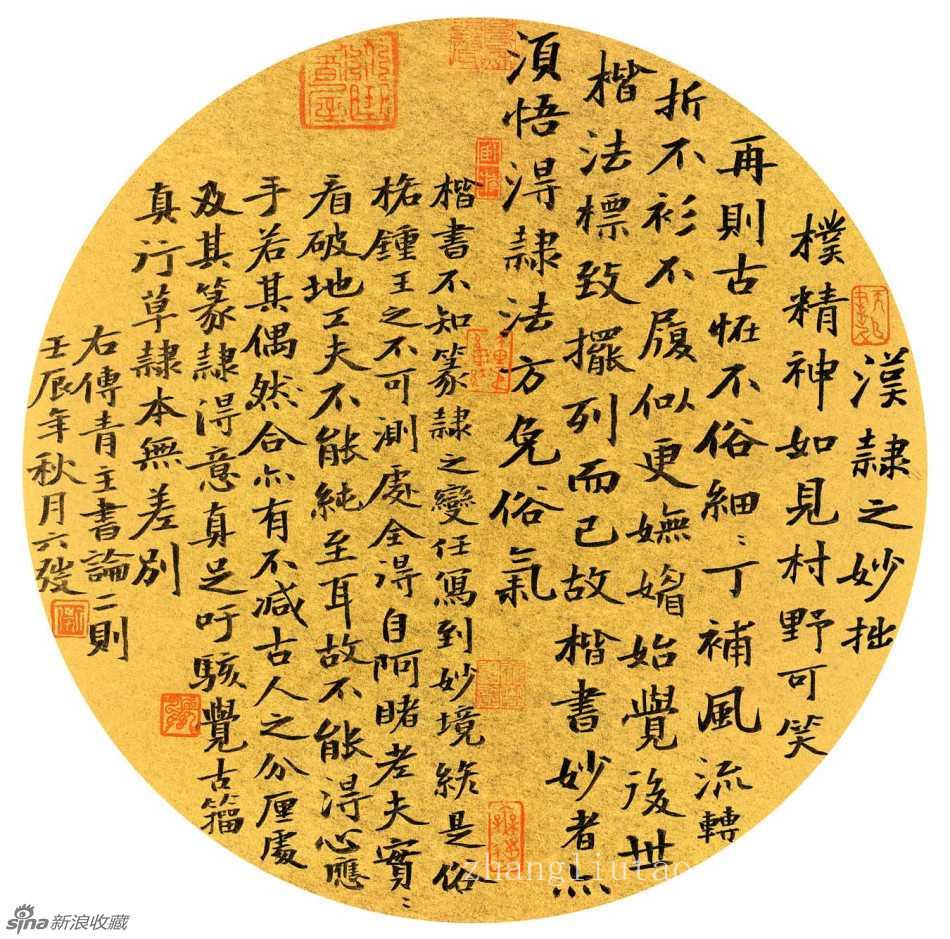 漢隸之妙拙
樸精神如見村野可笑
再則古恠不俗細〻丁補風流轉
折不衫不履似更嫵媚始覺後世
楷法標致擺列而已故楷書妙者亦
須悟得隸法方免俗氣
楷書不知篆隸之變任寫到妙境終是俗
格鍾王之不可測處全得自阿睹老夫實〻
看破地工夫不能純至耳故不能得心應
手若其偶然合亦有不減古人之分厘處
及其篆隸得意真足吁駭覺古籀
真行草隸本無差別
右傅青主書論二則
壬辰年秋月六
zhangliutao
sina新浪收藏